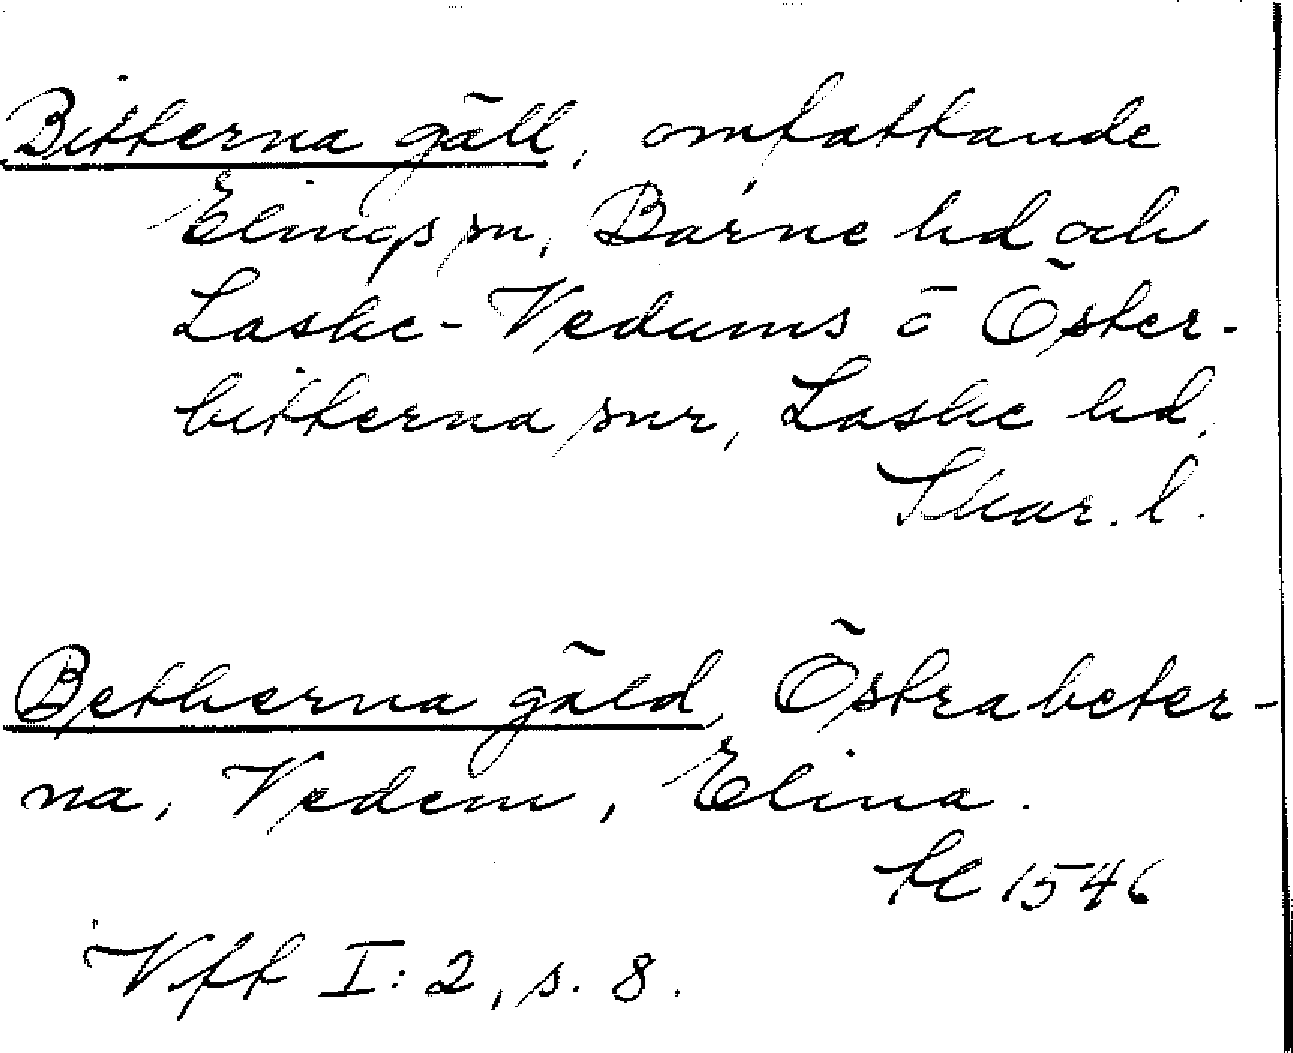 Bitterna gäll, omfattande
Elings sn, Barne hd och
Laske-Vedums o Öster-
bitterna snr, Laske hd,
Skar. l.
Betherna gäld, Östrabeter-
na, Vedem, Elina.
tl 1546
Vft I:2, s. 8.